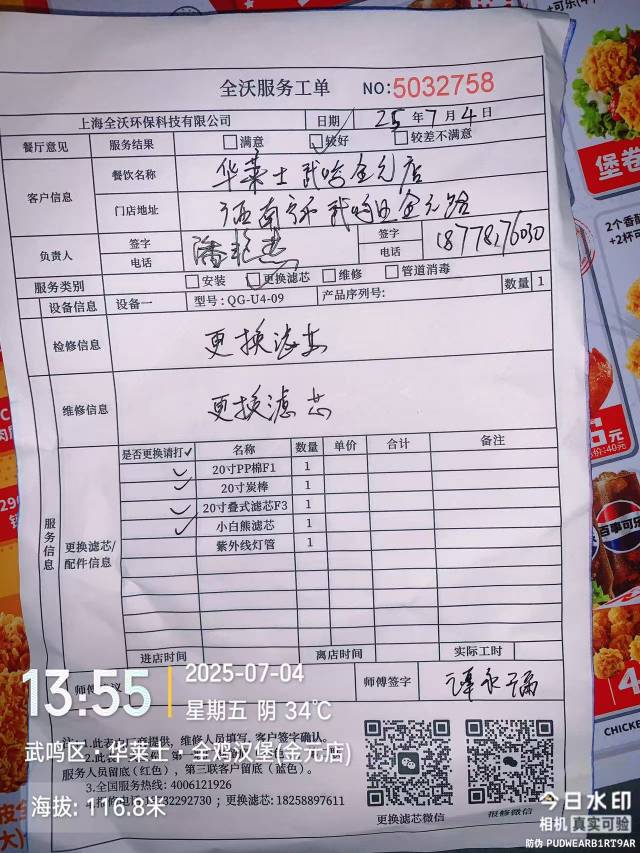 全沃服务工单 NO:5032758
上海全沃环保科技有限公司 日期 25年7月4日
餐厅意见 服务结果 满意 较好 较差不满意
客户信息 餐饮名称 华莱士武鸣金元店
门店地址 武鸣区金元路
负责人 签字 签字
电话 电话 18778276030
服务类别 安装 更换滤芯 维修 管道消毒
设备信息 设备一 型号:QG-U4-09 产品序列号: 数量 1
检修信息 更换滤芯
维修信息 更换滤芯
服务信息
更换滤芯/配件信息
是否更换请打✓ 名称 数量 单价 合计 备注
✓ 20寸PP棉F1 1
✓ 20寸炭棒 1
✓ 20寸叠式滤芯F3 1
✓ 小白熊滤芯 1
紫外线灯管 1
进店时间 离店时间 实际工时
师傅 师傅签字 谭永瑞
13:55
2025-07-04
星期五 阴 34℃
武鸣区·华莱士·全鸡汉堡(金元店)
海拔: 116.8米
提供, 维修人员填写, 客户签字确认。
服务人员留底(红色), 第三联客户留底(蓝色)。
3.全国服务热线: 4006121926
292730 ; 更换滤芯: 18258897611
更换滤芯微信 报修微信
今日水印
相机 真实可验
防伪 PUDWEARB1RT9AR
堡卷
百事可乐
CHICKE